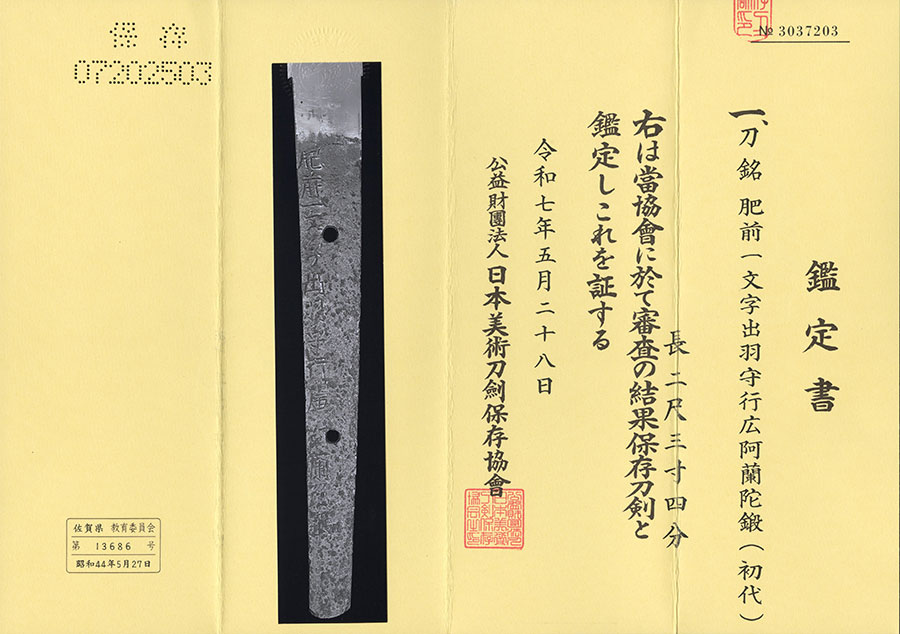 № 3037203
鑑定書
一、刀 銘 肥前一文字出羽守行広阿蘭陀鍛(初代)
長二尺三寸四分
右は當協會に於て審査の結果保存刀剣と
鑑定しこれを証する
令和七年五月二十八日
公益財團法人 日本美術刀劍保存協會
保存
07202503
佐賀県 教育委員会
第 13686 号
昭和44年5月27日